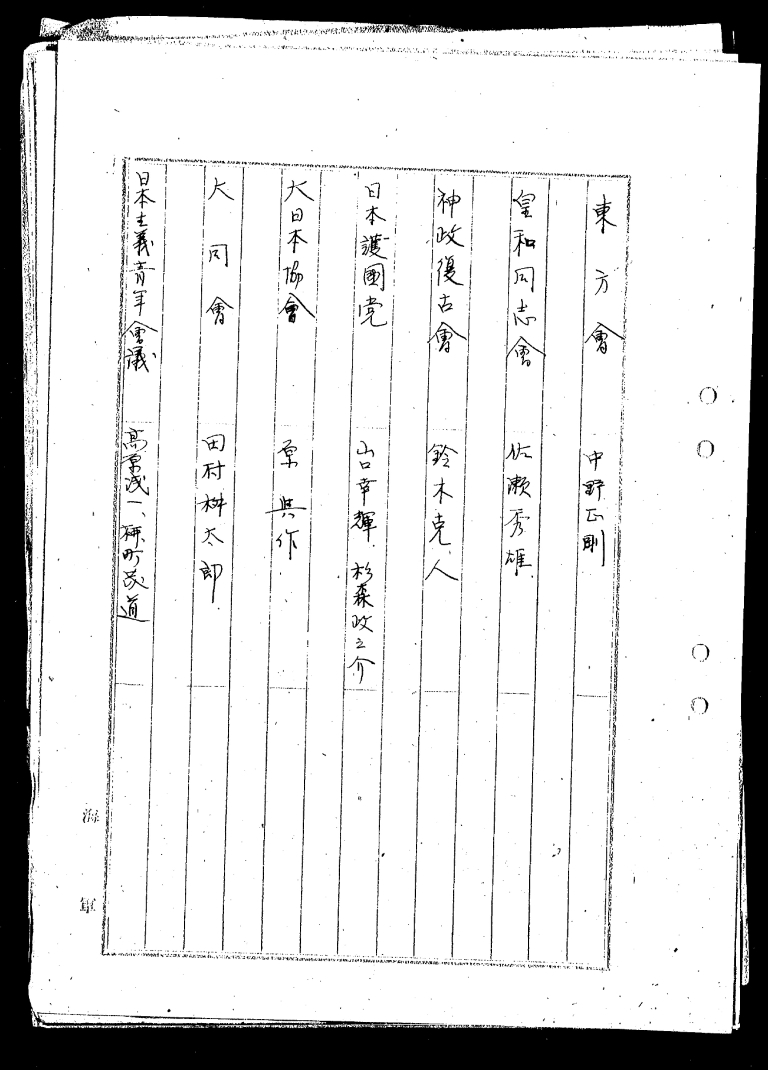 東方會 中野正剛
皇和同志會 佐瀬秀雄
神政復古會 鈴木克人
日本護國党 山口幸輝、杉森政之介
大日本協會
大同會 田村 太郎
日本主義青年會議 道
海軍